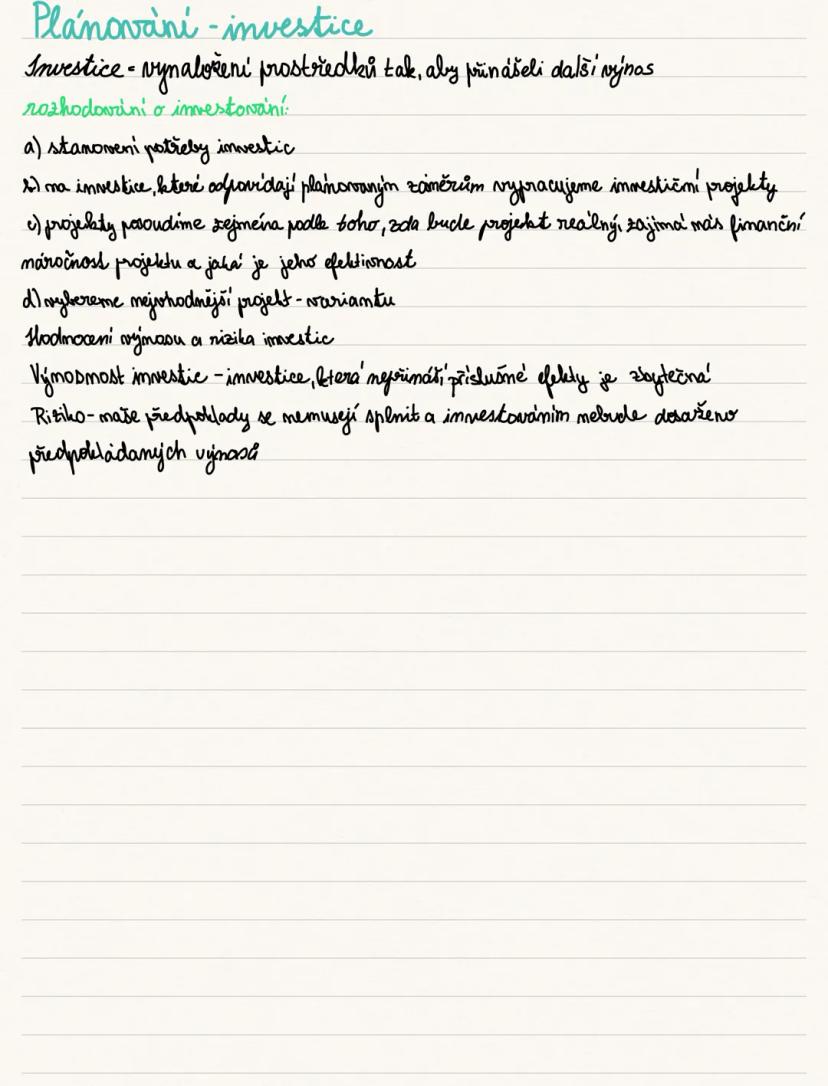 Plánování - investice
Investice - vynaložení prostředků tak, aby přinášeli další výnas
rozhodování o investování:
a) stanovení potřeby investic
b) na investice, které odpovídají plánovaným záměrům vypracujeme investiční projekty
c) projekty posoudíme zejména podle toho, zda bude projekt reálný, zajímá nás finanční
náročnost projektu a jaká je jeho efektivnost
d) vybereme nejvhodnější projekt - variantu
Hodnocení výnosu a rizika investic
Výnosnost investic - investice, která nepřináší příslušné efekty je zbytečná
Riziko - naše předpoklady se nemusejí splnit a investováním nebude dosaženo
předpokládaných výnosů